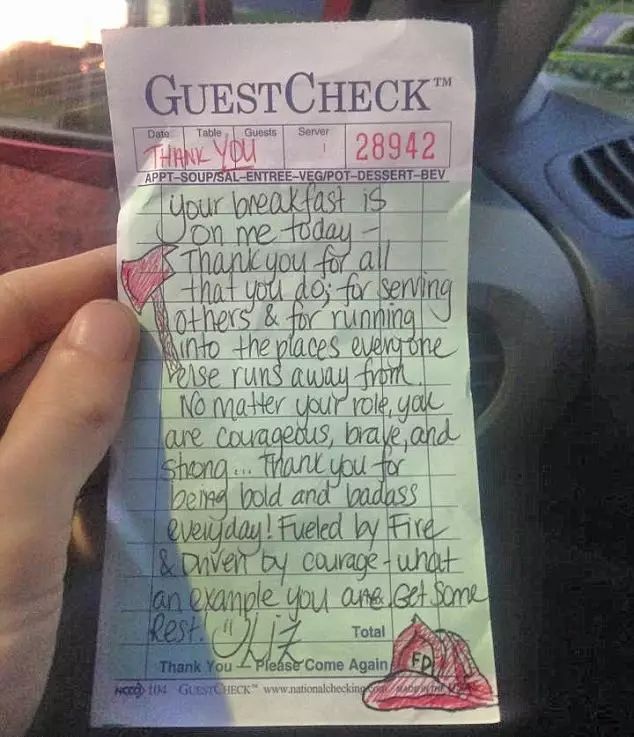 GUESTCHECK™
Date Table Guests Server
THANK YOU 28942
APPT–SOUP/SAL–ENTREE–VEG/POT–DESSERT–BEV
Your breakfast is
on me today –
Thank you for all
that you do; for serving
others & for running
into the places everyone
else runs away from.
No matter your role, you
are courageous, brave, and
strong... Thank you for
being bold and badass
everyday! Fueled by Fire
& Driven by courage - what
an example you are. Get some
Rest. Liz
Total
Thank You – Please Come Again
FD
104 GUESTCHECK™ www.nationalchecking.com